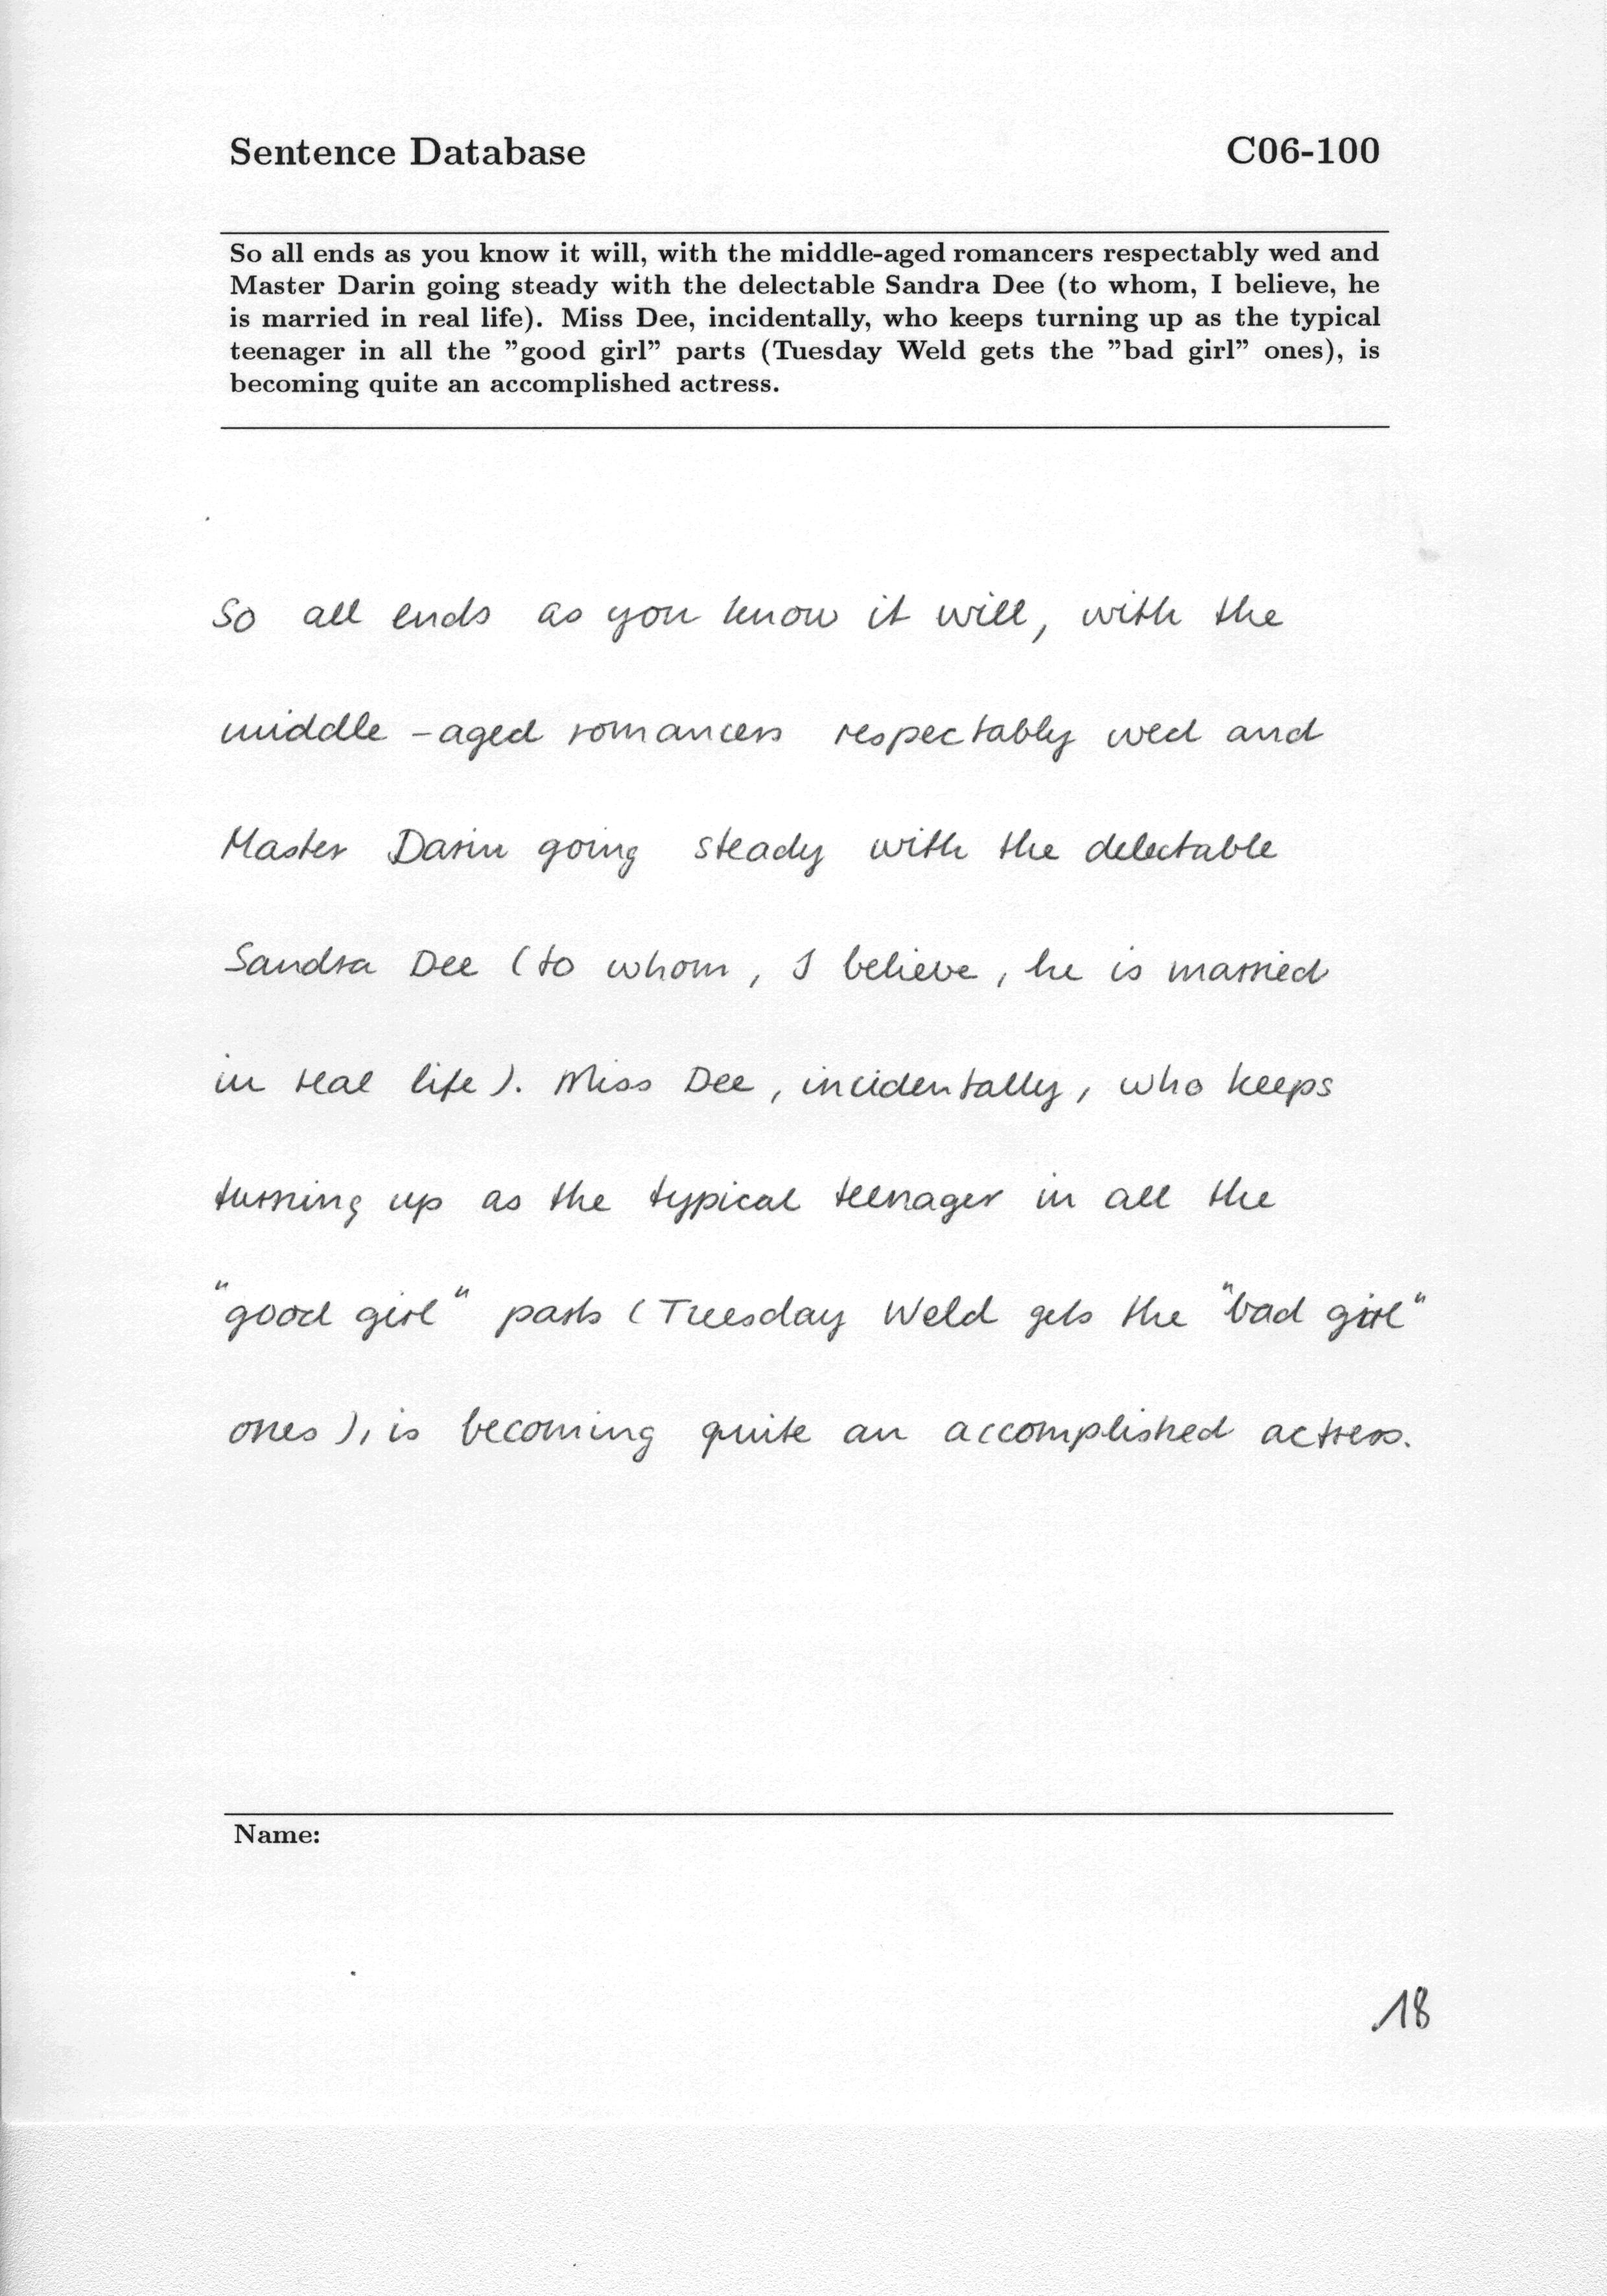 Sentence Database C06-100
So all ends as you know it will, with the middle-aged romancers respectably wed and
Master Darin going steady with the delectable Sandra Dee (to whom, I believe, he
is married in real life). Miss Dee, incidentally, who keeps turning up as the typical
teenager in all the ”good girl” parts (Tuesday Weld gets the ”bad girl” ones), is
becoming quite an accomplished actress.
So all ends as you know it will, with the
middle-aged romancers respectably wed and
Master Darin going steady with the delectable
Sandra Dee (to whom, I believe, he is married
in real life). Miss Dee, incidentally, who keeps
turning up as the typical teenager in all the
"good girl" parts (Tuesday Weld gets the "bad girl"
ones), is becoming quite an accomplished actress.
Name:
18